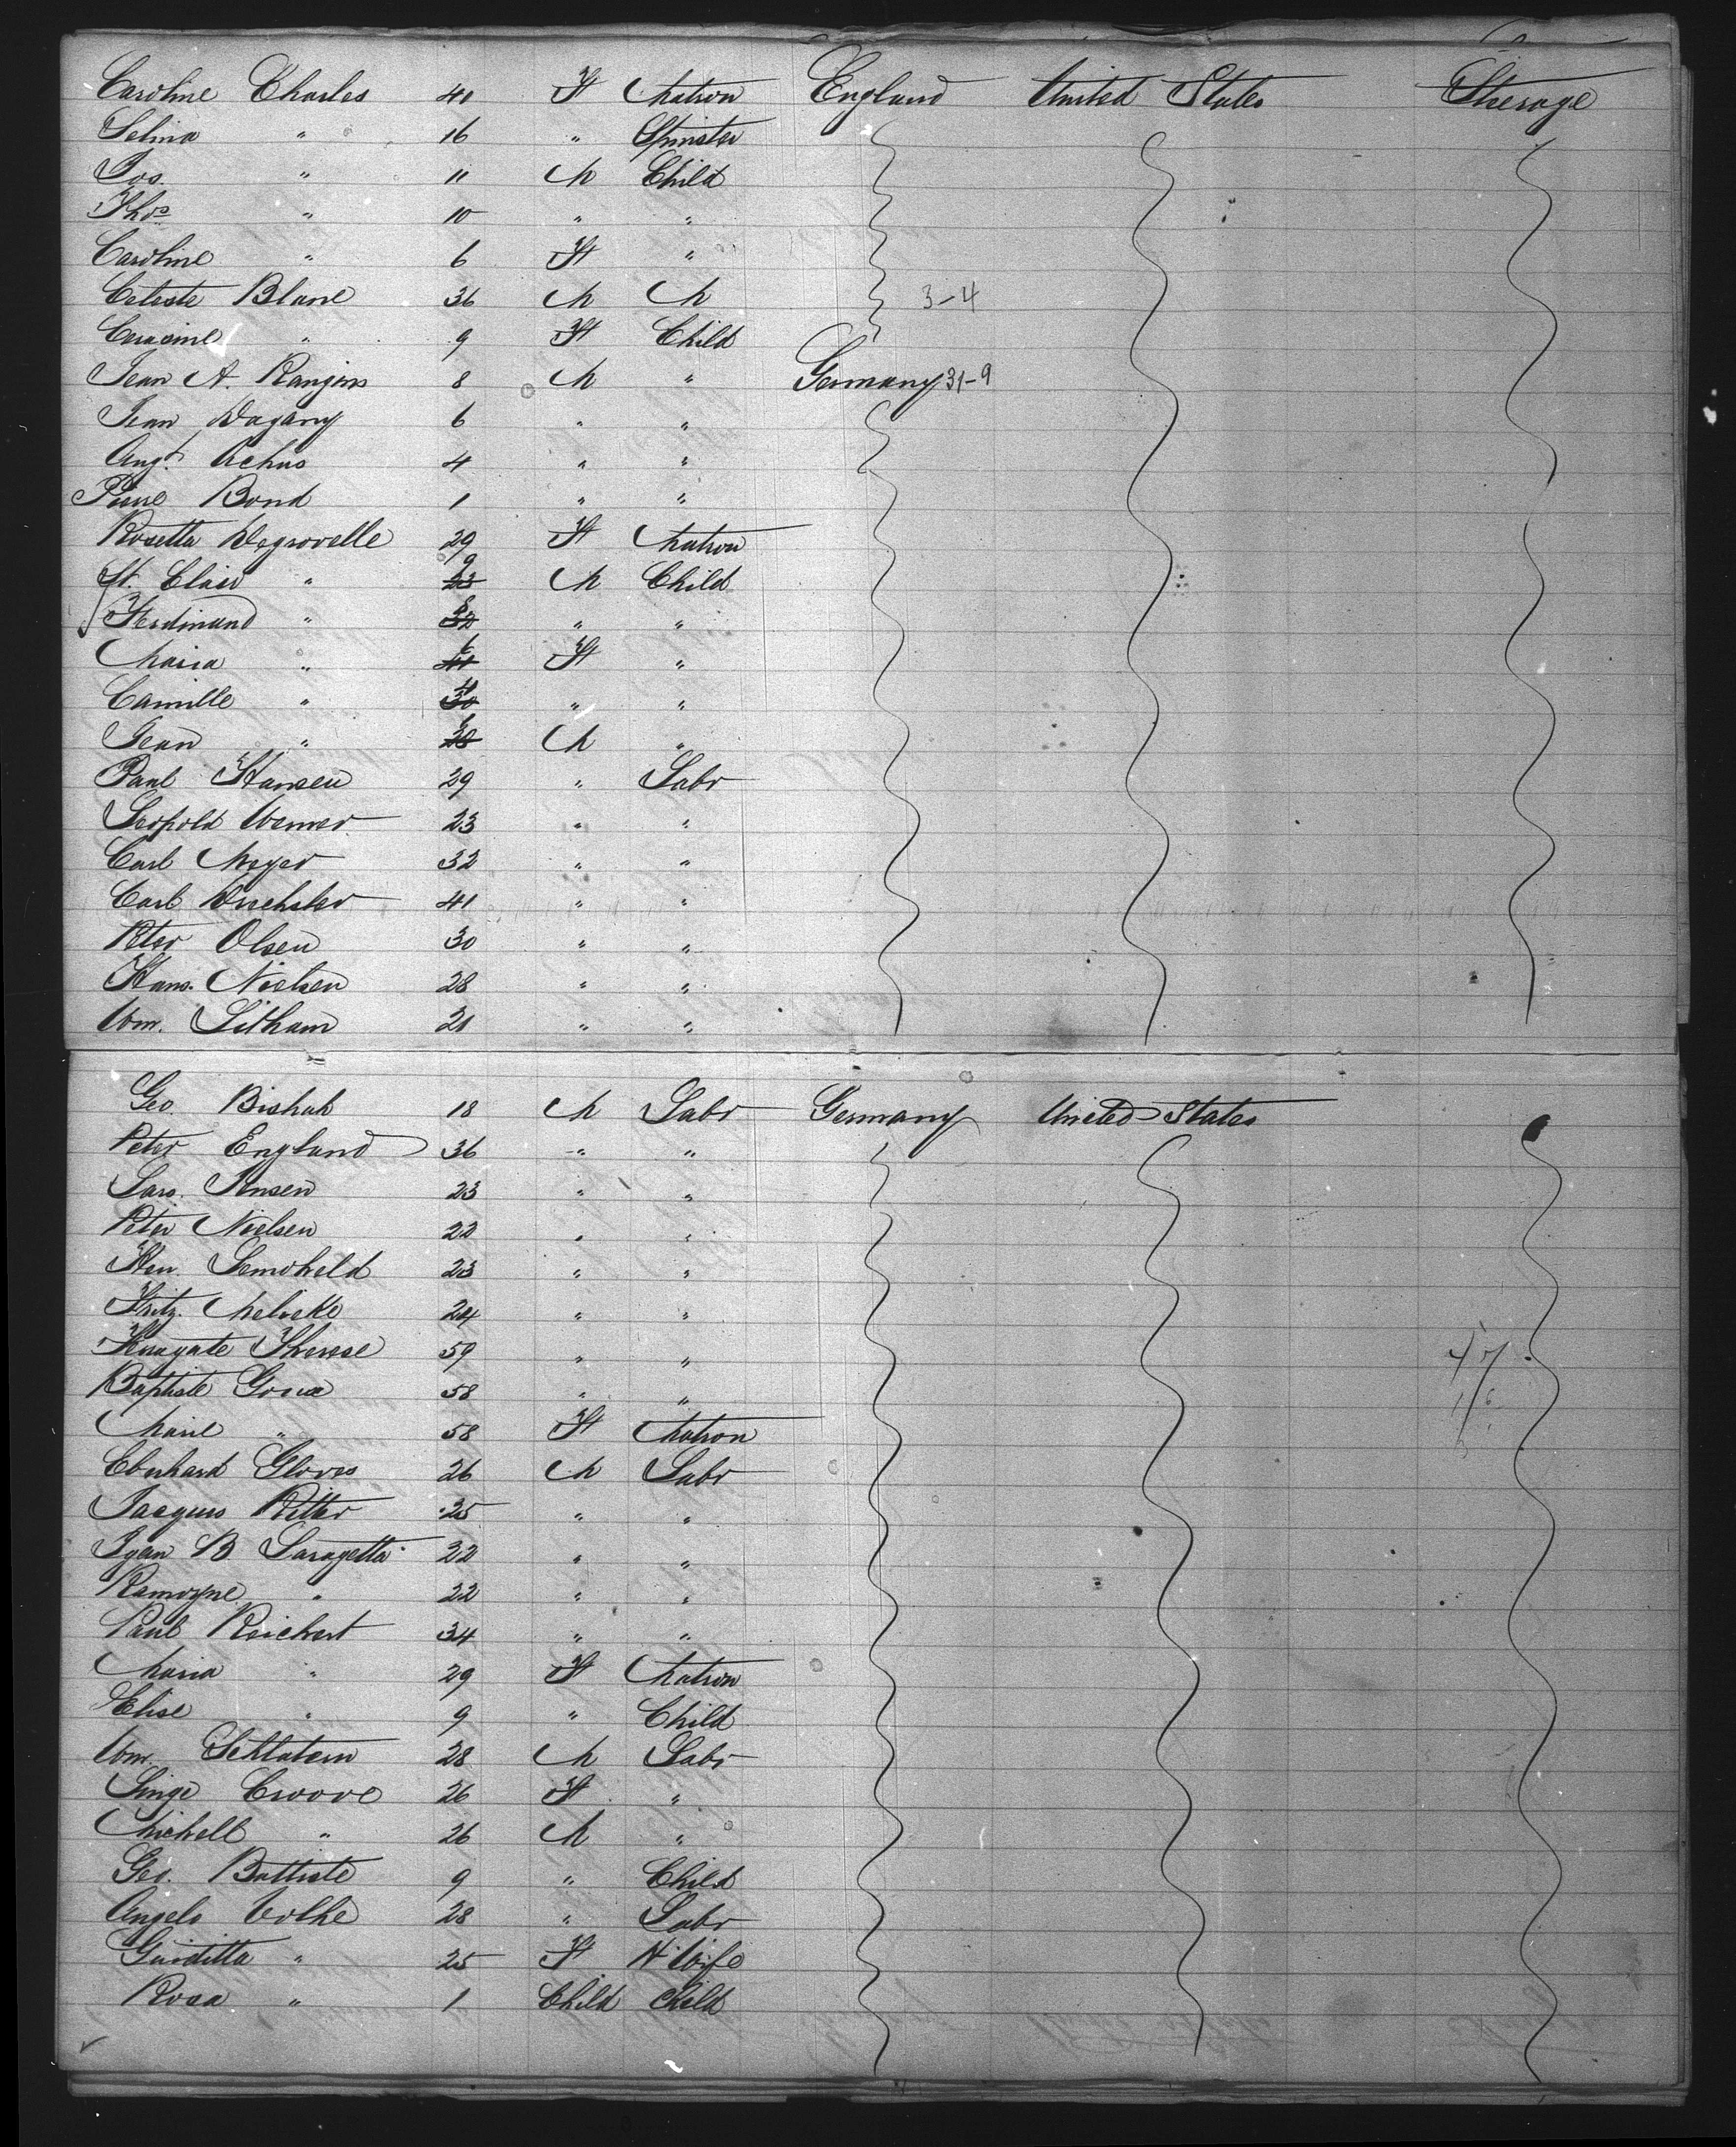 Caroline Charles 41 F Matron England United States Steerage
Selina " 16 " Spinster
Jos. " 11 M Child
Thos " 10 " "
Caroline " 6 F "
Celeste Blane 36 M M 3-4
" 9 F Child
Jean A. Rangins 8 M " Germany 31-9
Jean Dagany 6 " "
Augt. Achus 4 " "
Pierre Bond 1 " "
Rosetta Degrovelle 29 F Matron
St. Clair " 9 M Child
Ferdinand " 8 " "
Maria " 6 F "
Camille " 4 " "
Jean " M "
Paul Hansen 29 " Labr
Leopold Werner 23 " "
Carl Meyer 32 " "
Carl Drechsler 41 " "
Peter Olsen 30 " "
Hans. Nielsen 28 " "
Wm. Litham 21 " "
Geo. Bishah 18 M Labr Germany United States
Peter England 36 " "
Lars. Jensen 23 " "
Peter Nielsen 22 " "
Hen. 23 " "
Fritz. 24 " "
Therese 59 " "
Baptiste 58 " "
Marie " 58 F Matron
Eberhard Gloves 26 M Labr
Jacques Ritter 25 " "
Jean B Saragetta 22 " "
" 22 " "
Paul Reichert 34 " "
Maria " 29 F Matron
Elise " 9 " Child
Wm. 28 M Labr
Croove 26 F "
Michell " 26 M "
Geo. Battiste 9 " Child
Angelo Volhe 28 " Labr
Guiditta " 25 F H Wife
Rosa " 1 Child Child